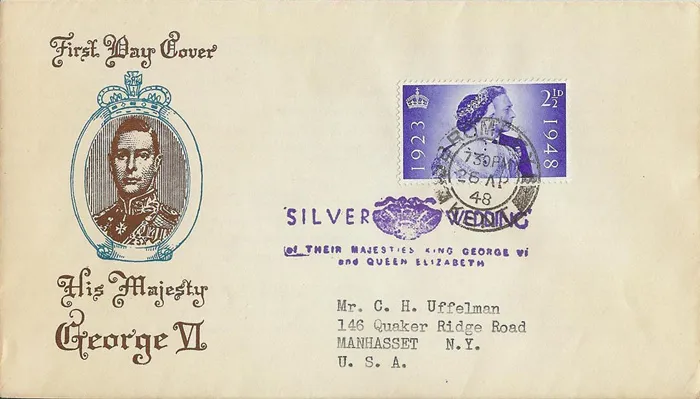 First Day Cover
His Majesty
George VI
1923
2½D
1948
7 30 PM
26 AP
48
SILVER WEDDING
of THEIR MAJESTIES KING GEORGE VI
and QUEEN ELIZABETH
Mr. C. H. Uffelman
146 Quaker Ridge Road
MANHASSET N.Y.
U. S. A.